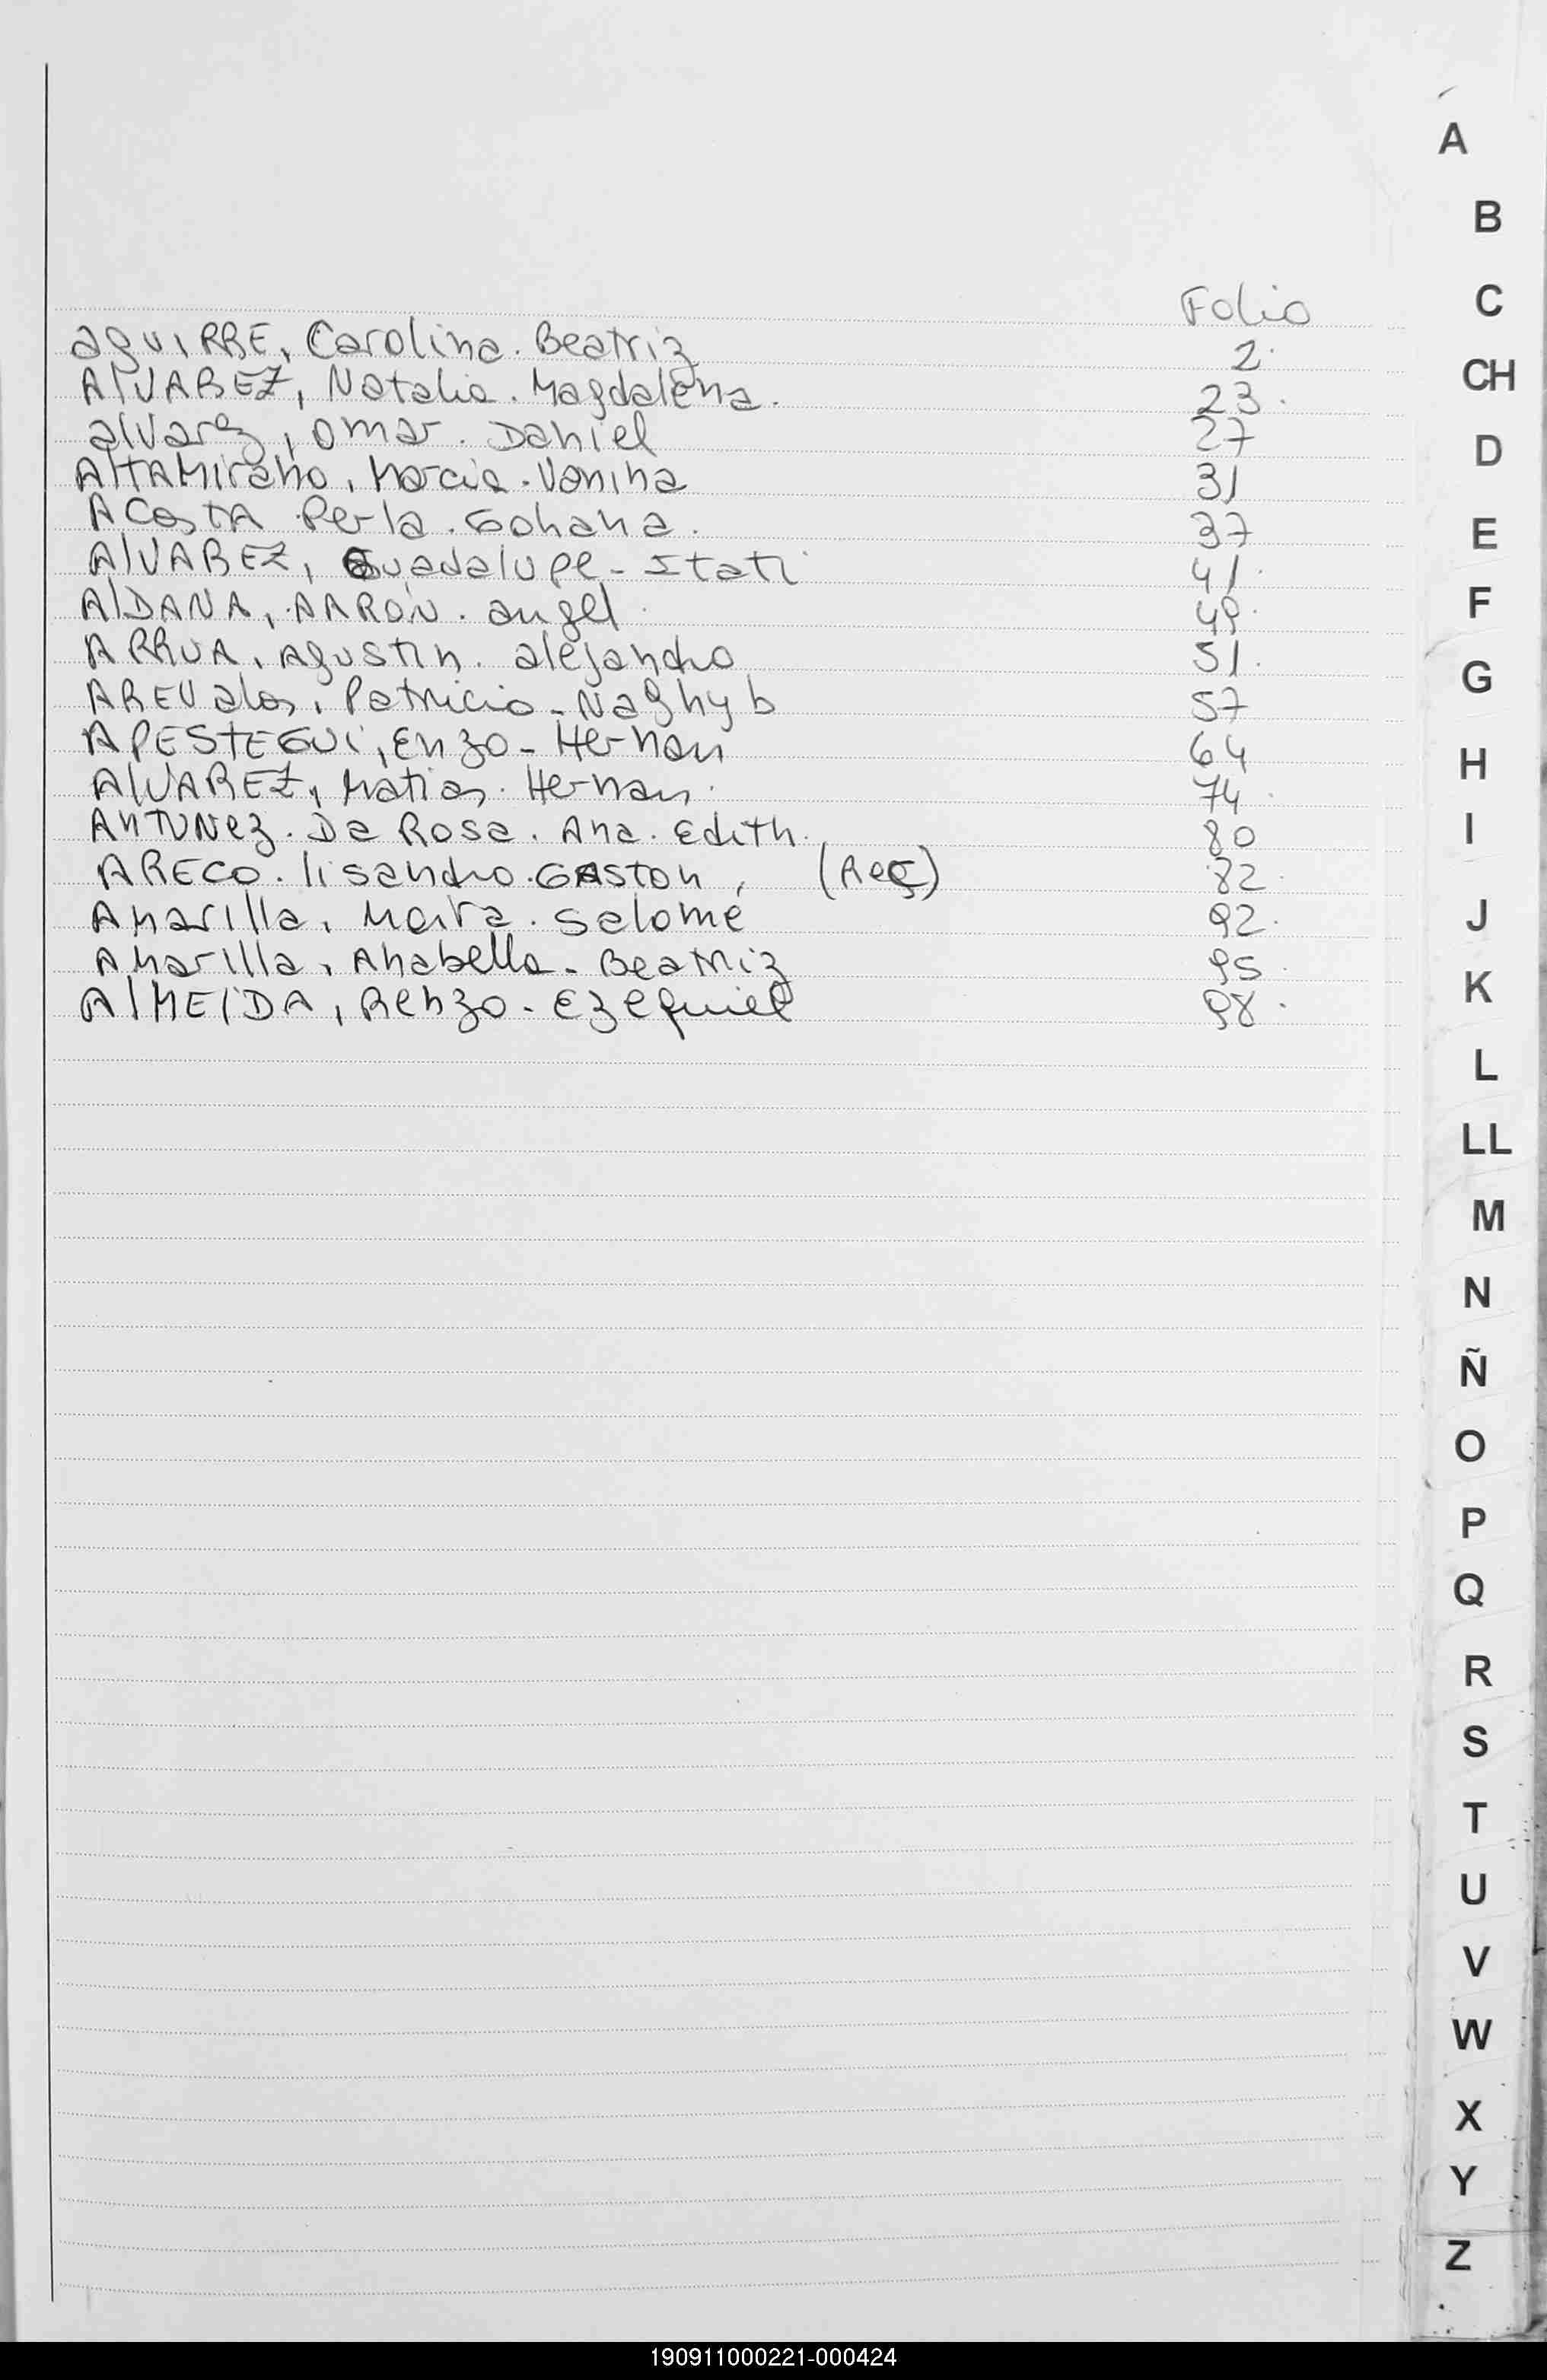 Folio
aguIRRE, Carolina. Beatriz 2.
AlVAREZ, Natalia. Magdalena. 23.
alvarez, omar. Daniel 27
AltaMirano, Marcia. Vanina 31
ACostA Perla. Gohana. 37
AlVAREZ, Guadalupe - Itati 41.
AlDANA, AARON. angel. 49.
ARRUA, Agustin. alejandro 51.
AREValos, Patricio - Naghyb 57
APESTEGUi, Enzo - Hernan 64
AlVAREZ, Matias. Hernan. 74.
AnTUNez. Da Rosa. Ana. Edith. 80
ARECO. lisandro. GAston, (Rec) 82.
Amarilla, Maira. Salomé 92.
Amarilla, Anabella - Beatriz 95.
AlMEiDA, Renzo - Ezequiel 98.
A
B
C
CH
D
E
F
G
H
I
J
K
L
LL
M
N
Ñ
O
P
Q
R
S
T
U
V
W
X
Y
Z
190911000221-000424